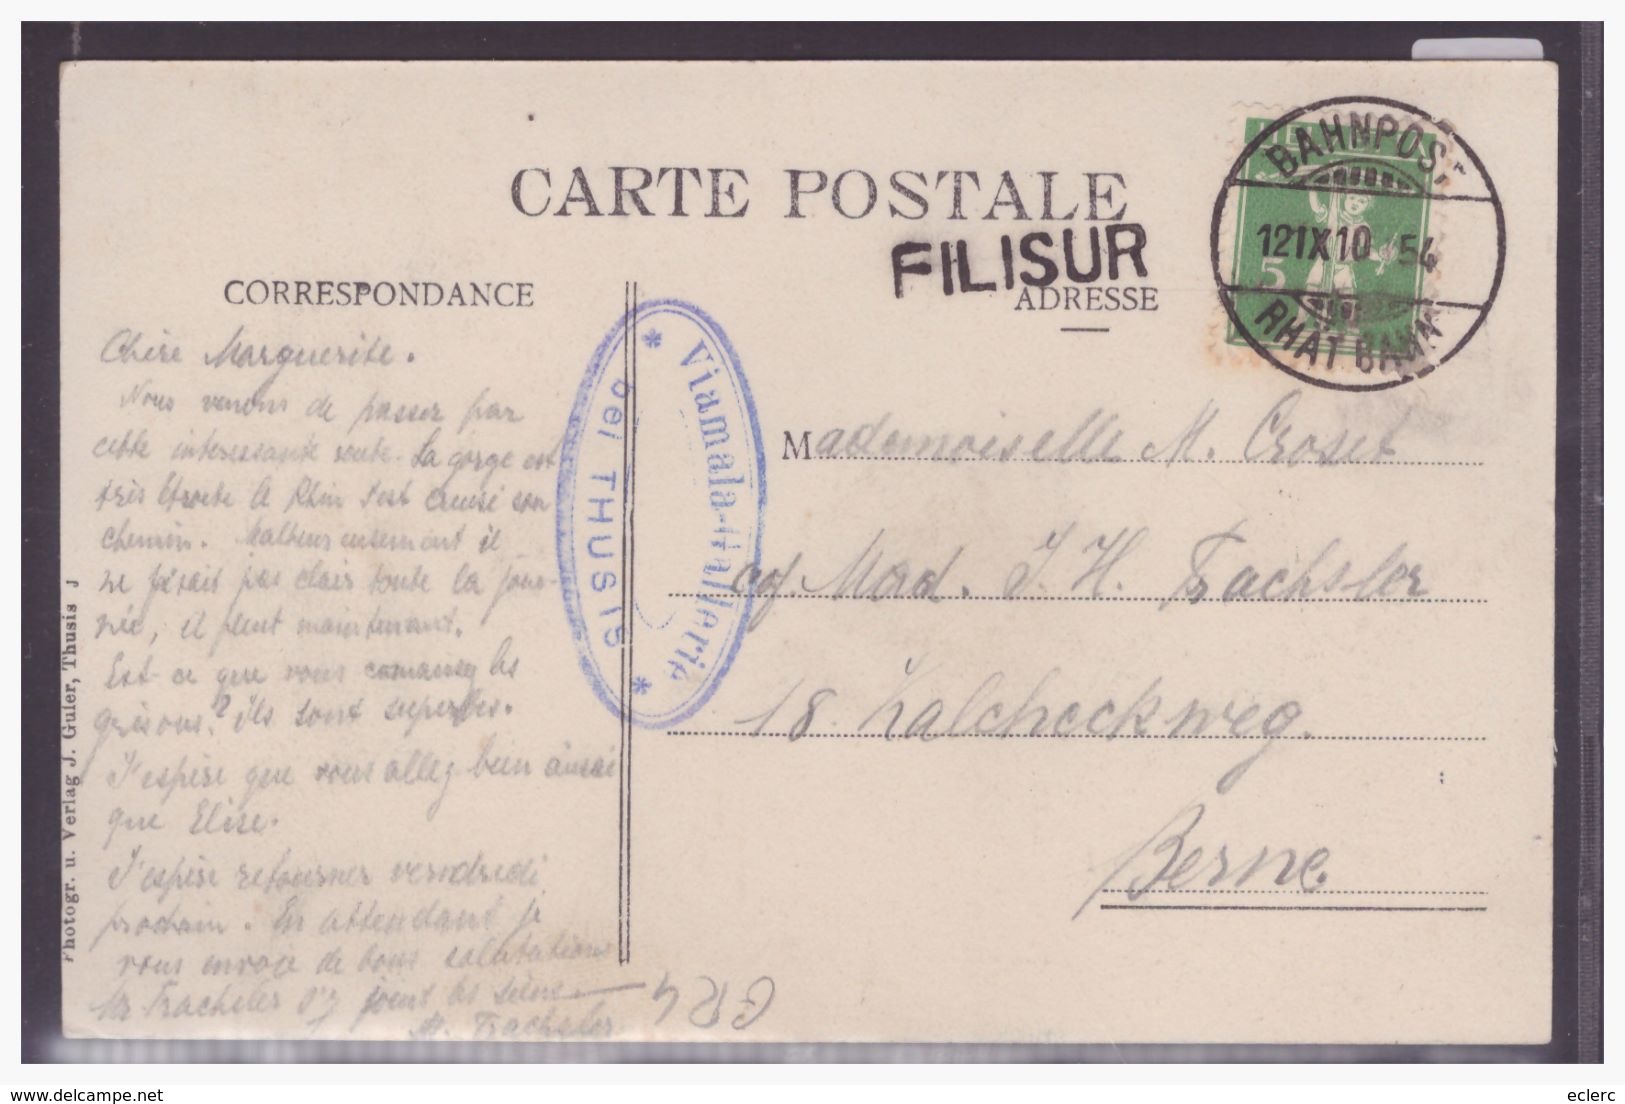 CARTE POSTALE
FILISUR
CORRESPONDANCE
ADRESSE
BAHNPOST
12 IX 10 54
RHÄT BAHN
5
Viamala-Gallerie
bei THUSIS
Chère Marguerite.
Nous venons de passer par
cette interessante route. La gorge est
très étroite le Rhin s'est creusé son
chemin. Malheureusement il
ne faisait pas clair toute la jour-
née, il pleut maintenant.
Est-ce que vous connaissez les
grisons? ils sont superbes.
J'espère que vous allez bien ainsi
que Elise.
J'espère retourner vendredi
prochain. En attendant je
vous envoie de bons salutations
Mr Trachsler s'y joint les siens
M. Trachsler
Mademoiselle M. Croset
Mad. J. H. Trachsler
18 Kalcheckweg.
Berne.
GR 4
Photogr. u. Verlag J. Guler, Thusis J
delcampe.net
eclerc